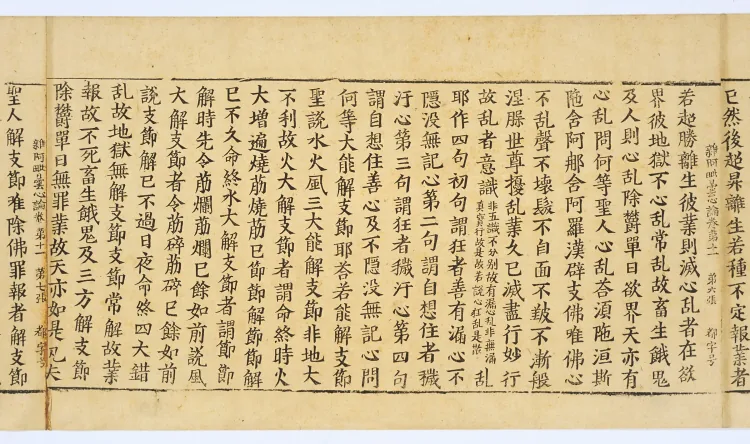 已然後起昇離生若種不定報業者
雜阿毗曇心論卷第十一 第六張 都字号
若起勝離生彼業則滅心乱者在欲
界彼地獄不心乱常乱故畜生餓鬼
及人則心乱除欝單曰欲界天亦有
心乱問何等聖人心乱荅湏陁洹斯
陁含阿那含阿羅漢辟支佛唯佛心
不乱聲不壞髮不白面不皺不漸般
涅槃世尊擾乱業久已滅盡行妙行
故乱者意識非五識不分別故有漏心乱非無漏真實行故是故若說心狂乱是乱
耶作四句初句謂狂者善有漏心不
隱没無記心第二句謂自想住者穢
汙心第三句謂狂者穢汙心第四句
謂自想住善心及不隱没無記心問
何等大能解支節耶荅若能解支節
聖說水火風三大能解支節非地大
不利故火大解支節者謂命終時火
大増遍燒筋燒筋已支節解節節解
已不久命終水大解支節者謂節節
解時先令筋爛筋爛已餘如前說風
大解支節者令筋碎筋碎已餘如前
說支節解已不過日夜命終四大錯
乱故地獄無解支節支節常解故業
報故不死畜生餓鬼及三方解支節
除欝單曰無罪業故天亦如是凡夫
雜阿毗曇心論卷第十一 第七張 都字号
聖人解支節唯除佛罪報者解支節